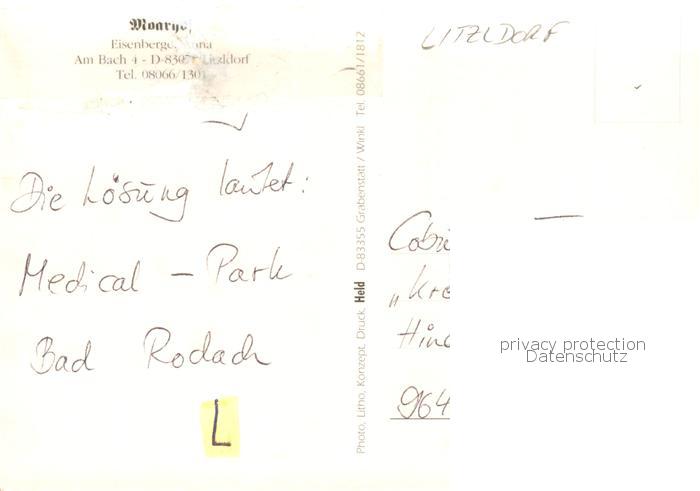 Moarhof
Am Bach 4 - D-830 Litzldorf
Tel. 08066/1301
LITZLDORF
Die Lösung lautet:
Medical - Park
Bad Rodach
L
Photo, Litho, Konzept, Druck, Held D-83355 Grabenstätt / Winkl Tel. 08661/1812
964
privacy protection
Datenschutz